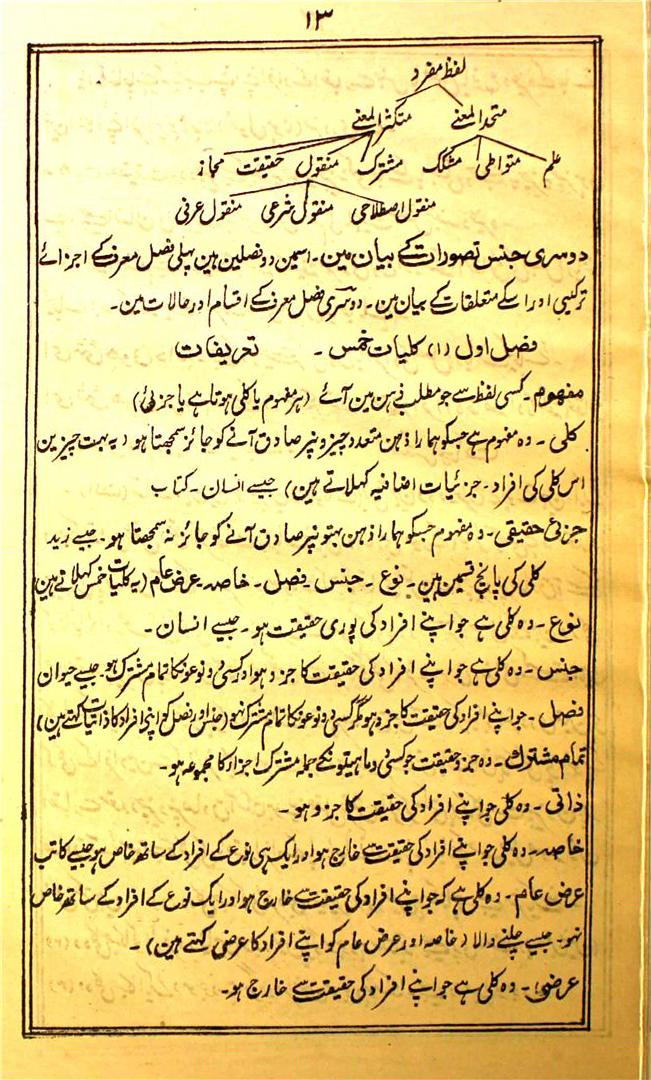 ۱۳
لفظ مفرد
متحد المعنے متکثر المعنے
علم متواطی مشکک مشترک منقول حقیقت مجاز
منقول اصطلاحی منقول شرعی منقول عرفی
دوسری جنس تصورات کے بیان مین۔ اسمین دو فصلین ہین پہلی فصل معرف کے اجزائے
ترکیبی اور اسکے متعلقات کے بیان مین۔ دوسری فصل معرف کے اقسام اور حالات مین۔
فصل اول (۱) کلیات خمس۔ تعریفات
مفہوم۔ کسی لفظ سے جو مطلب ذہن مین آئے (ہر مفہوم یا کلی ہوتا ہے یا جزئی)
کلی۔ وہ مفہوم ہے جسکو ہمارا ذہن متعدد چیزونپر صادق آنے کو جائز سمجھتا ہو (یہ بہت چیزین
اس کلی کی افراد۔ جزئیات اضافیہ کہلاتے ہین) جیسے انسان۔ کتاب
جزئی حقیقی۔ وہ مفہوم جسکو ہمارا ذہن بہتونپر صادق آنے کو جائز نہ سمجھتا ہو۔ جیسے زید
کلی کی پانچ قسمین ہین۔ نوع۔ جنس۔ فصل۔ خاصہ۔ عرض عام (یہ کلیات خمس کہلاتے ہین)
نوع۔ وہ کلی ہے جو اپنے افراد کی پوری حقیقت ہو۔ جیسے انسان۔
جنس۔ وہ کلی ہے جو اپنے افراد کی حقیقت کا جزو ہو اور کسی دو نوعونکا تمام مشترک ہو۔ جیسے حیوان
فصل۔ جو اپنے افراد کی حقیقت کا جزو ہو مگر کسی دو نوعونکا تمام مشترک نہو (جنس اور فصل کو اپنے افراد کا ذاتیات کہتے ہین)
تمام مشترک۔ وہ جزو حقیقت جو کسی دو ماہیتونکے جملہ مشترک اجزا کا مجموعہ ہو۔
ذاتی۔ وہ کلی جو اپنے افراد کی حقیقت کا جزو ہو۔
خاصہ۔ وہ کلی جو اپنے افراد کی حقیقت سے خارج ہو اور ایک ہی نوع کے افراد کے ساتھ خاص ہو جیسے کاتب
عرض عام۔ وہ کلی ہے کہ جو اپنے افراد کی حقیقت سے خارج ہو اور ایک نوع کے افراد کے ساتھ خاص
نہو۔ جیسے چلنے والا (خاصہ اور عرض عام کو اپنے افراد کا عرضی کہتے ہین)۔
عرضی۔ وہ کلی ہے جو اپنے افراد کی حقیقت سے خارج ہو۔